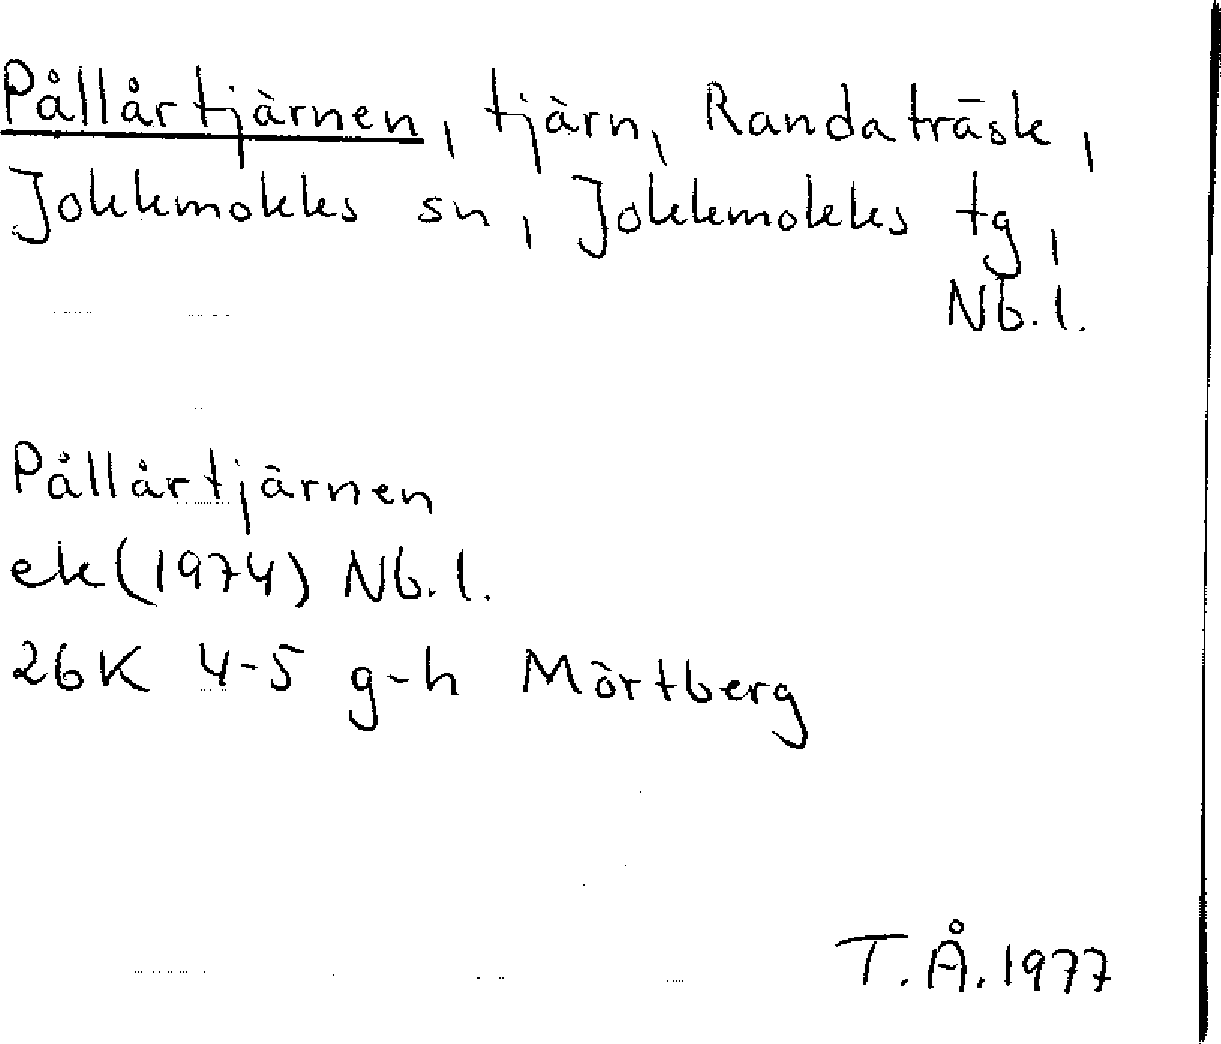 Pållårtjärnen, tjärn, Randaträsk,
Jokkmokks sn, Jokkmokks tg,
Nb. l.
Pållårtjärnen
ek (1974) Nb. l.
26K 4-5 g-h Mörtberg
T. Å. 1977